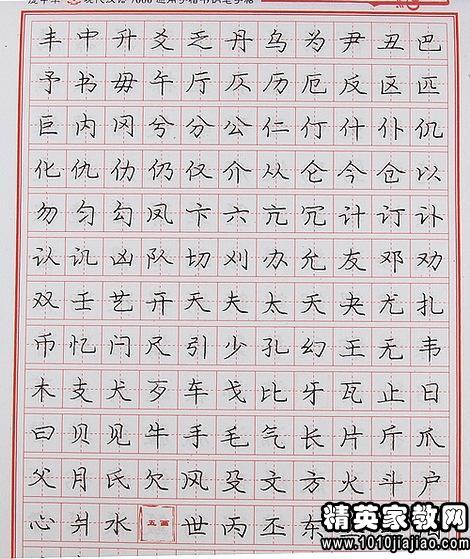 现代汉语 7000 通用字楷书钢笔字帖
丰中升爻乏丹乌为尹丑巴
予书毋午厅仄历厄反区匹
巨内冈兮分公仁仃什仆仉
化仇仂仍仅介从仑今仓以
勿匀勾凤卞六亢冗计订讣
认讥凶队切刈办允友邓劝
双壬艺开天夫太夭夬尤扎
币忆闩尺引少孔幻王无韦
木支犬歹车戈比牙瓦止日
曰贝见牛手毛气长片斤爪
父月氏欠风殳文方火斗户
心爿水 五画 世丙丕东
精英家教网
www.1010jiajiao.com